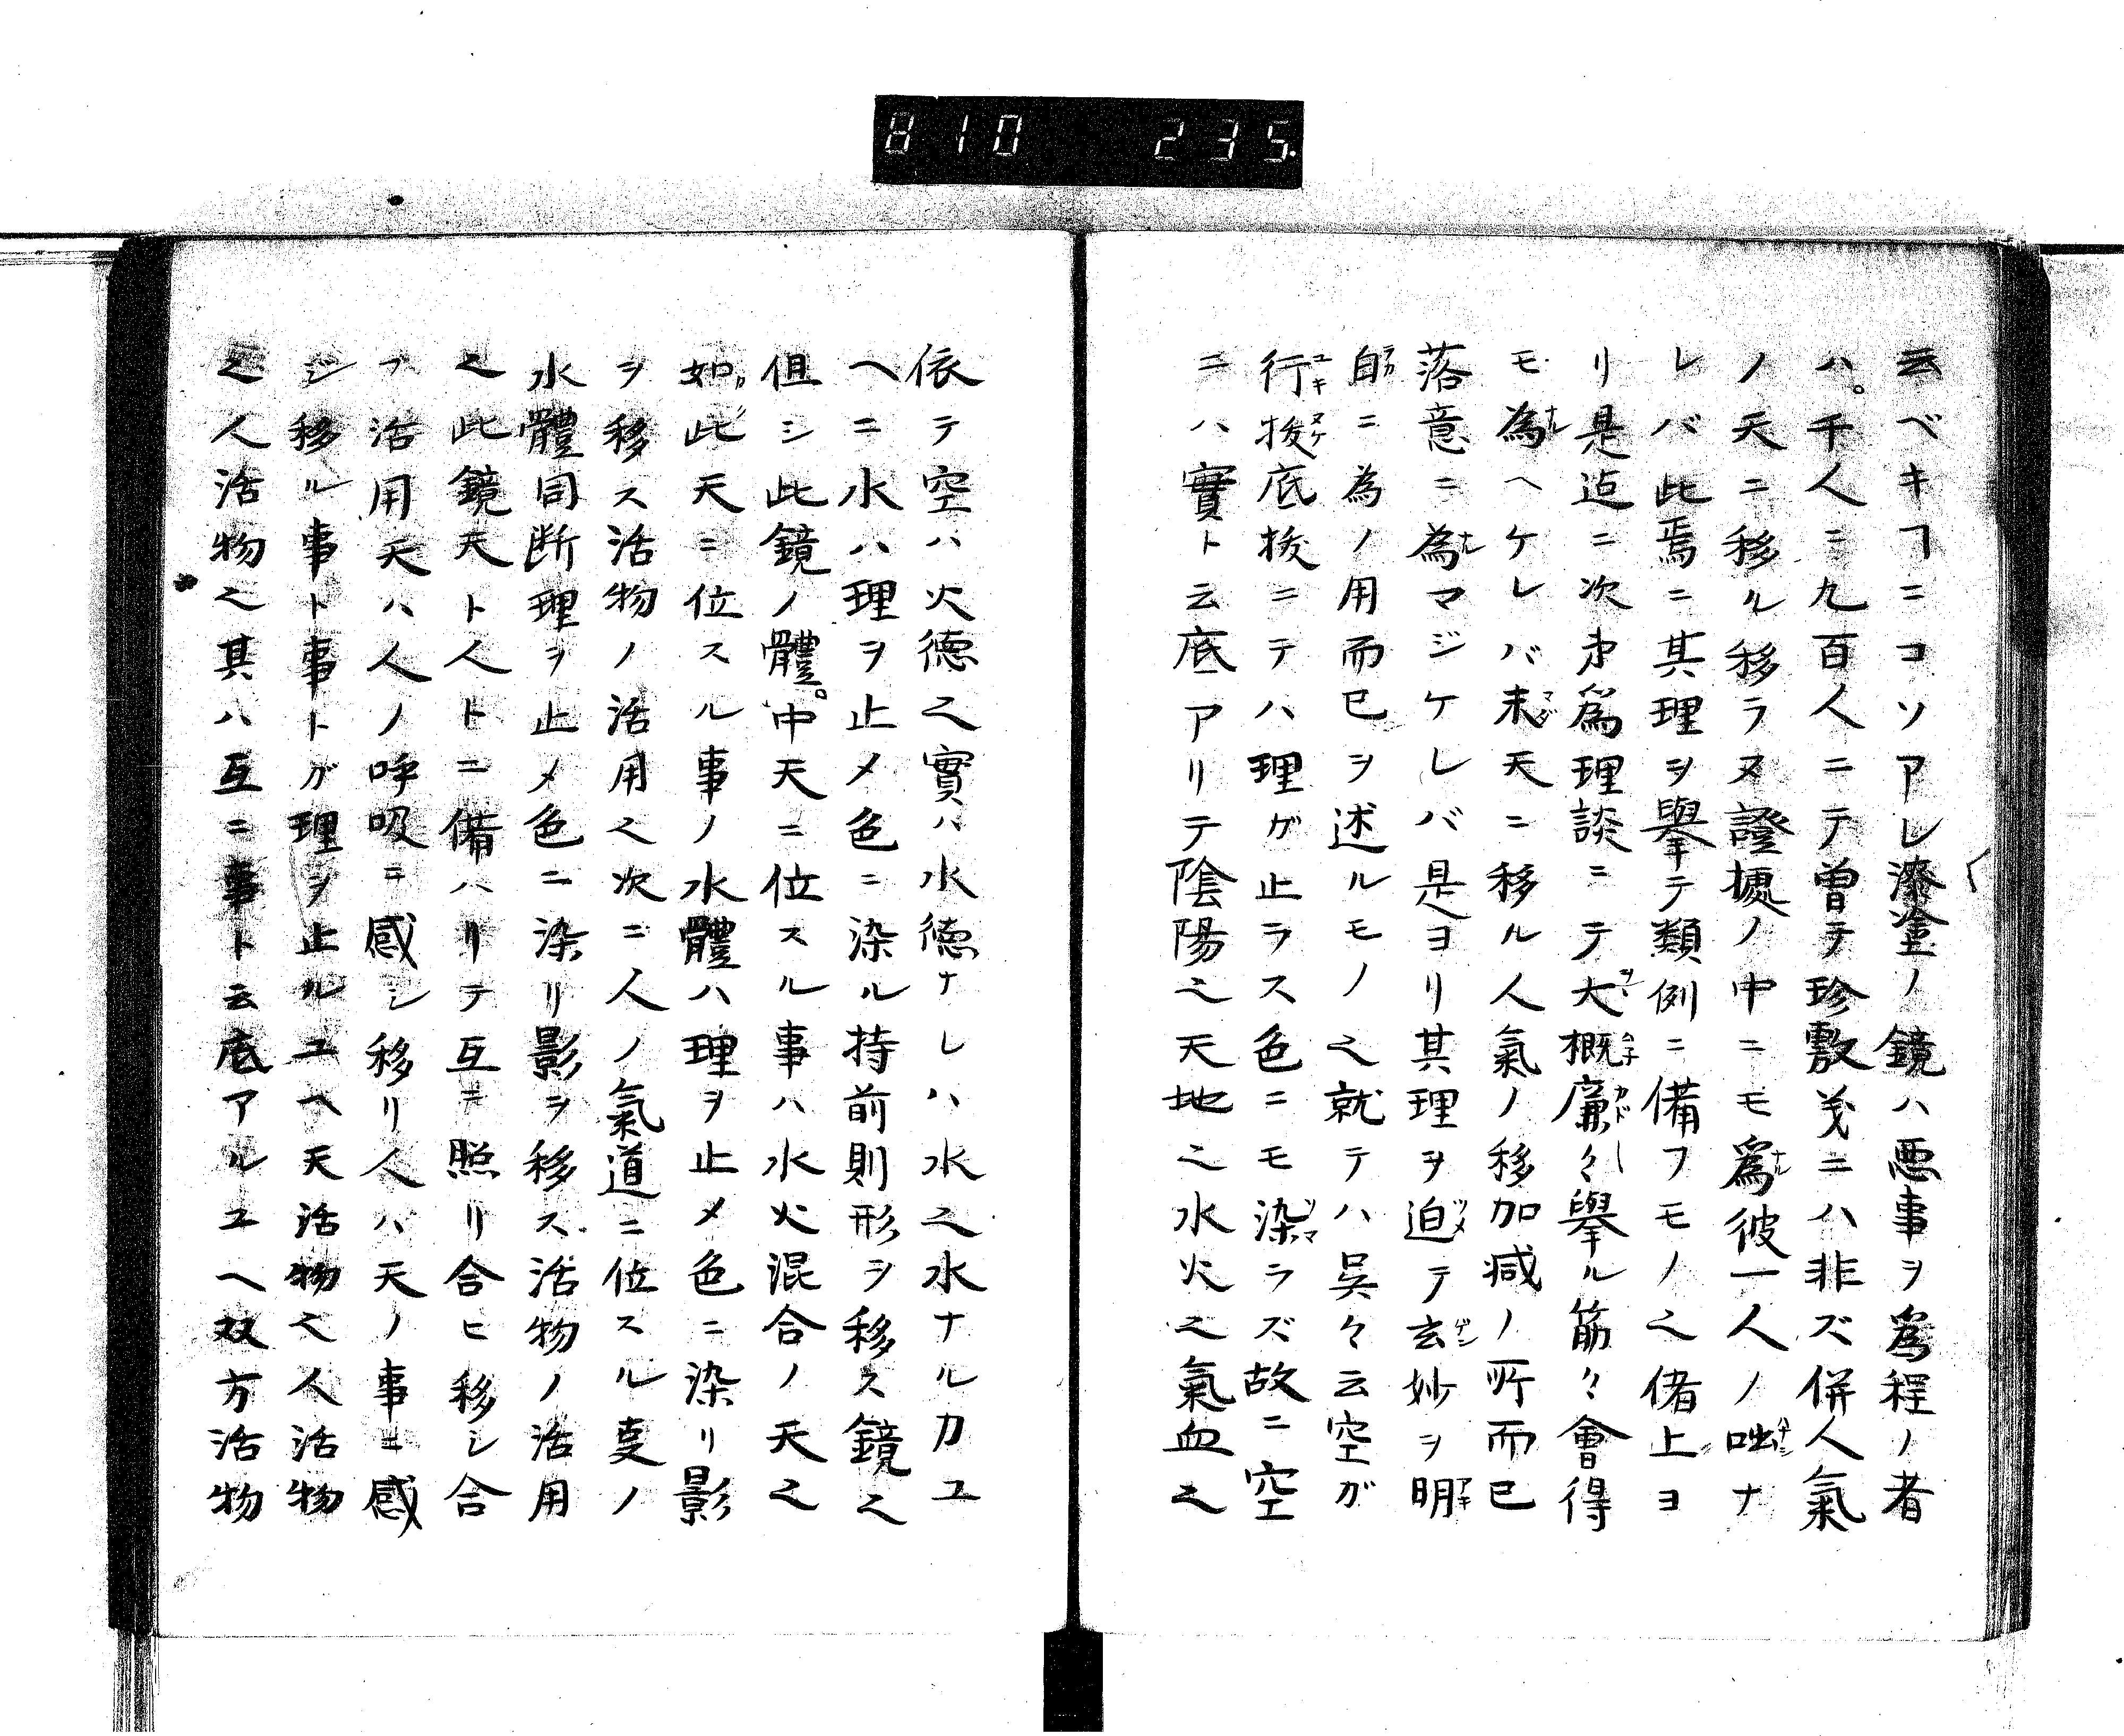 810 235.
云ベキヿニコソアレ漆塗ノ鏡ハ悪事ヲ為程ノ者
ハ。千人ニ九百人ニテ曽テ珍敷㐧ニハ非ズ併人氣
ノ天ニ移ル移ラヌ證據ノ中ニモ為彼一人ノ咄ナ
レバ此焉ニ其理ヲ擧テ類例ニ備フモノ之偖上ヨ
リ是迠ニ次㐧為理談ニテ大概廉々擧ル筋々會得
モ為ヘケレバ未天ニ移ル人氣ノ移加减ノ所而已
落意ニ為マジケレバ是ヨリ其理ヲ迫テ玄妙ヲ明
白ニ為ノ用而已ヲ述ルモノ之就テハ呉々云空ガ
行抜底抜ニテハ理ガ止ラス色ニモ染ラズ故ニ空
ニハ實ト云底アリテ陰陽之天地之水火之氣血之
依テ空ハ火德之實ハ水德ナレハ水之水ナル力ユ
ヘニ水ハ理ヲ止メ色ニ染ル持前則形ヲ移ス鏡之
但シ此鏡ノ體。中天ニ位スル事ハ水火混合ノ天之
如此天ニ位スル事ノ水體ハ理ヲ止メ色ニ染リ影
ヲ移ス活物ノ活用之次ニ人ノ氣道ニ位スル㕝ノ
水體同断理ヲ止メ色ニ染リ影ヲ移ス活物ノ活用
之此鏡天ト人トニ備ハリテ互ニ照リ合ヒ移シ合
フ活用天ハ人ノ呼吸ニ感シ移リ人ハ天ノ事ニ感
ジ移ル事ト事トガ理ヲ止ルユヘ天活物之人活物
之人活物之其ハ互ニ事ト云底アルユヘ双方活物